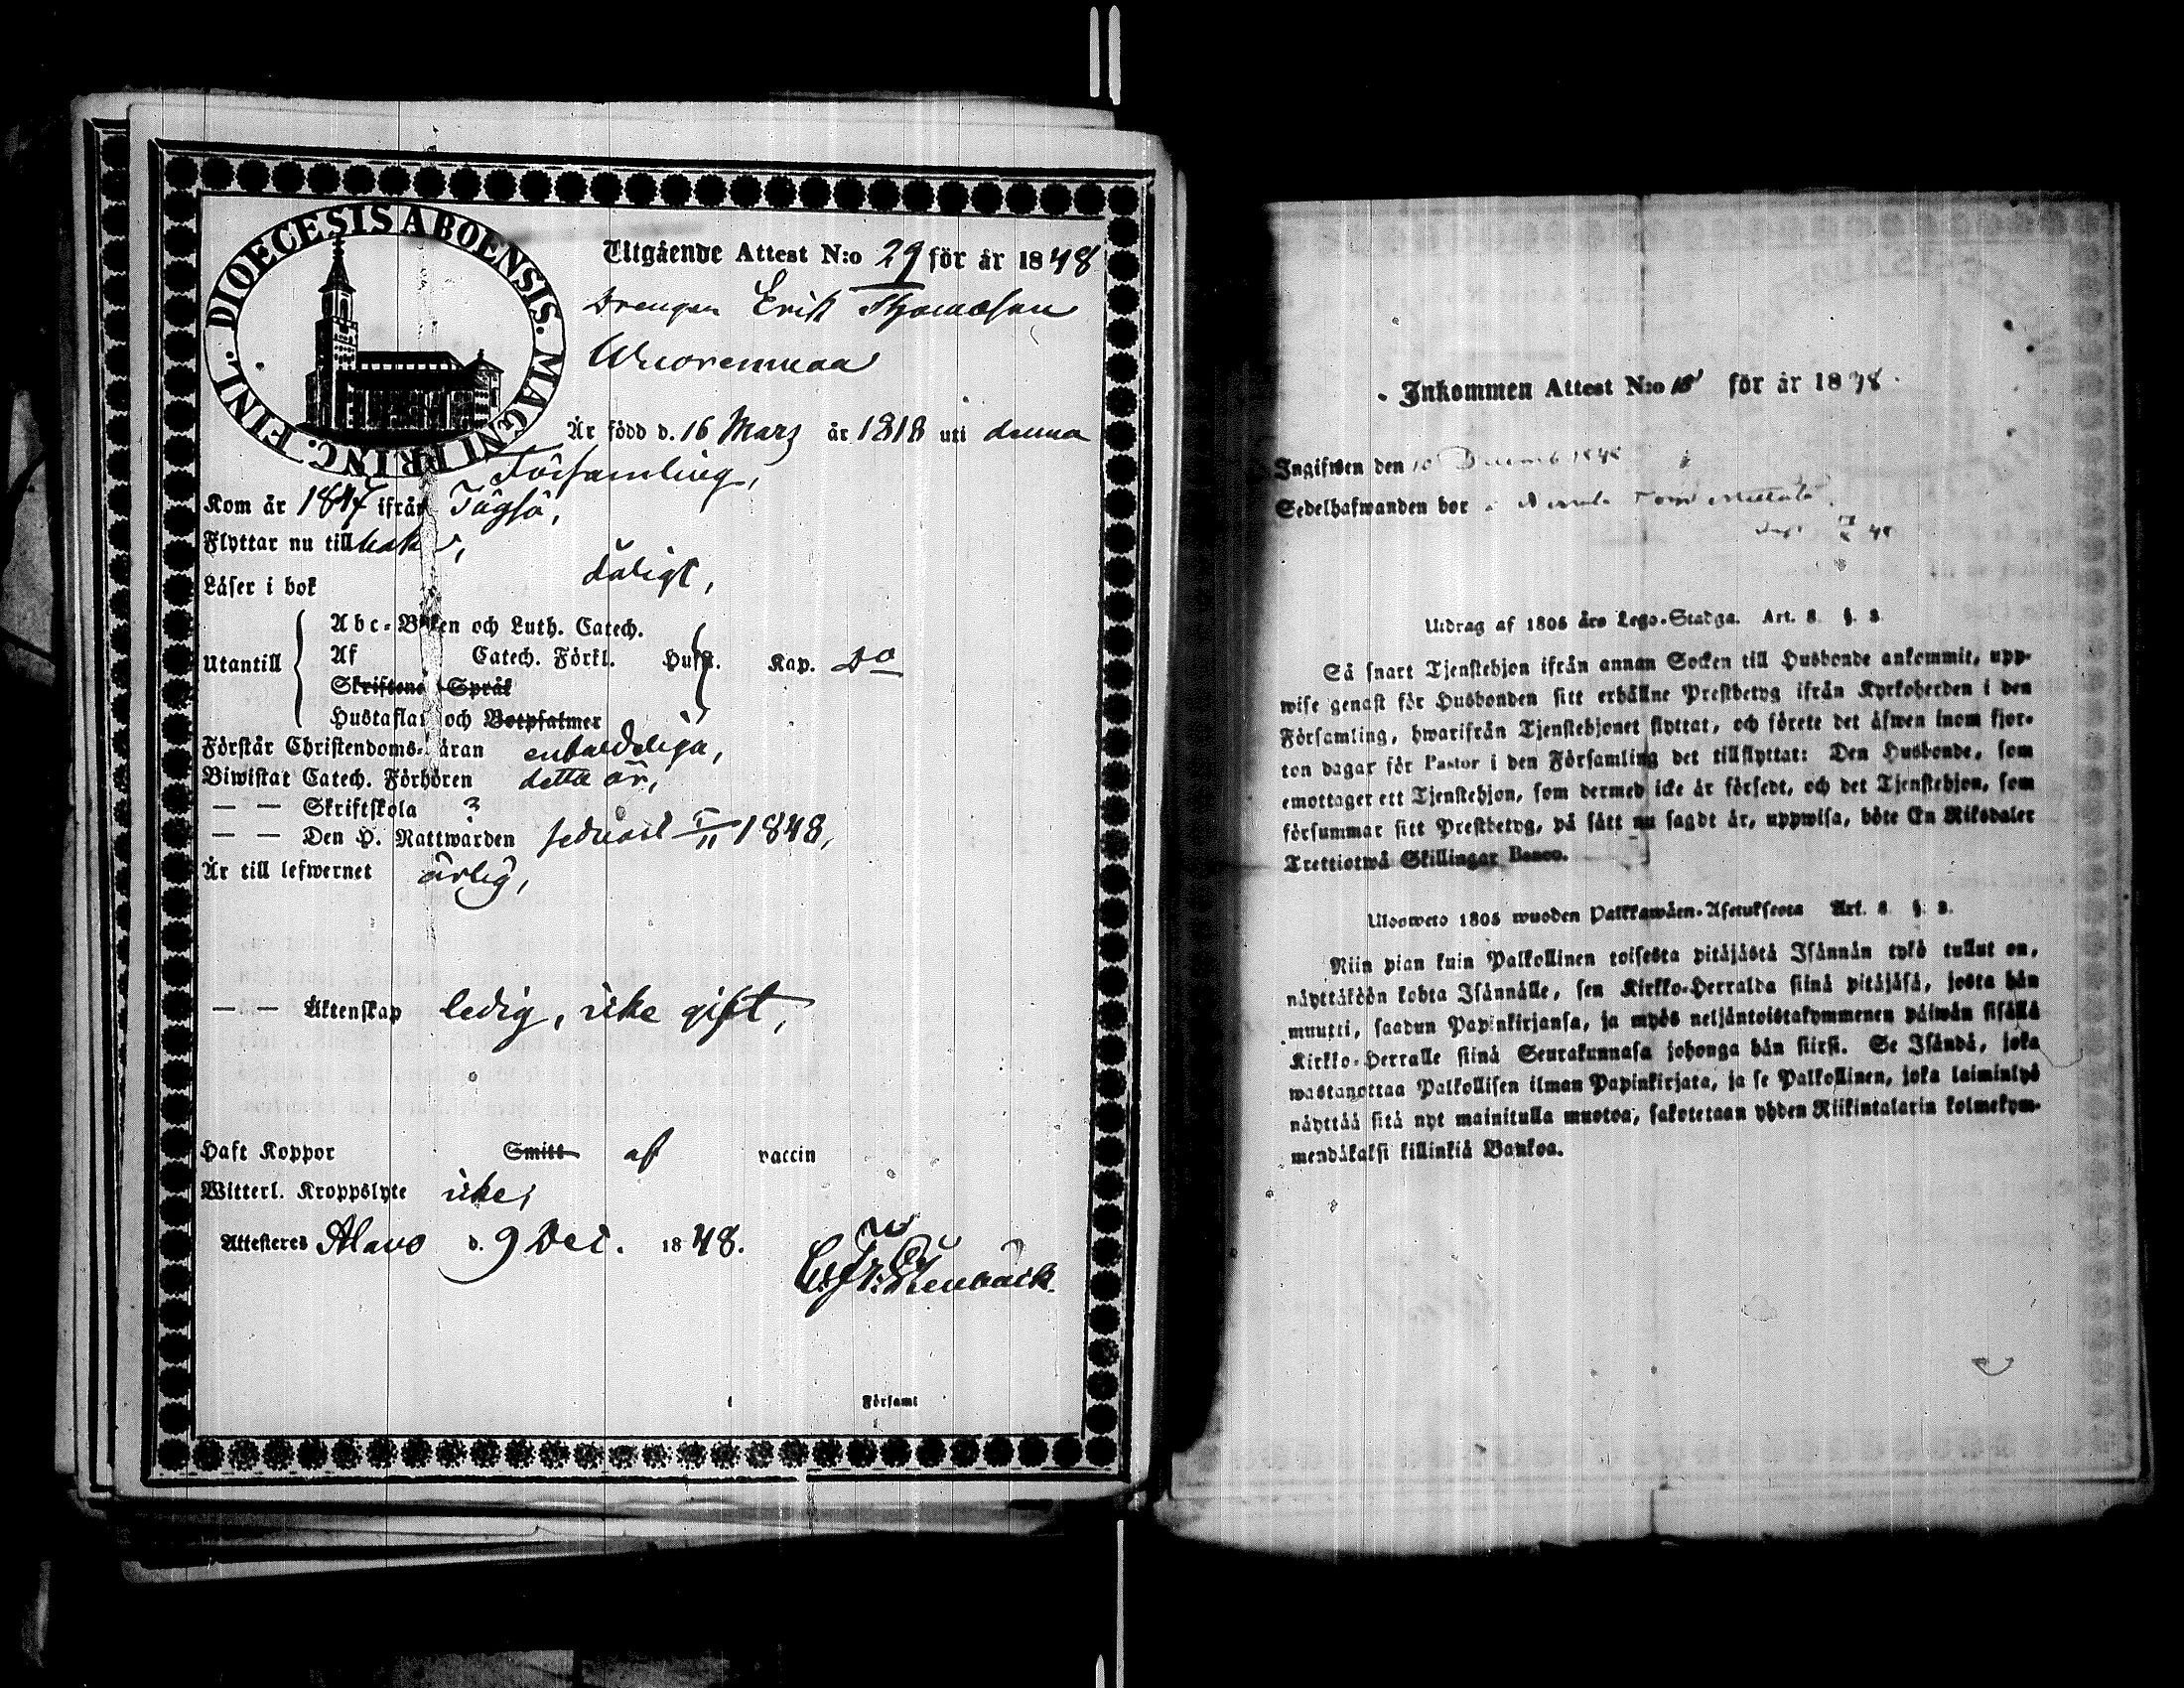 DIOECESIS ABOENSIS. MAGNI PRINC. FINL.
Utgående Attest N:o 29 för år 1848
Drengen Erik Thomasson
Wuorenmaa
Är född d. 16 Mars år 1818 uti denna
Församling,
Kom år 1847 ifrån Töysö,
Flyttar nu till
Läser i bok dåligt,
Utantill
Abc-Boken och Luth. Catech.
Af Catech. Förkl. Husft. Kap. Do
Skriftenes Språk
Hustaflan och Botpsalmer
Förstår Christendoms-läran enfaldeliga,
Biwistat Catech. Förhören detta år,
— — Skriftskola ?
— — Den H. Nattwarden sednast 5/11 1848,
Är till lefwernet ärlig,
— — Äktenskap ledig, icke gift,
Haft Koppor Smitt af vaccin
Witterl. Kroppslyte icke,
Attesteres Alavo d. 9 Dec. 1848.
C. Fr. Stenbäck.
Församl
Inkommen Attest N:o 15 för år 1848.
Ingifwen den 10 Decemb 1848
Sedelhafwanden bor
Utdrag af 1805 års Lego-Stadga. Art. 8. §. 3.
Så snart Tjenstehjon ifrån annan Socken till Husbonde ankommit, upp-
wise genast för Husbonden sitt erhållne Prestbetyg ifrån Kyrkoherden i den
Församling, hwarifrån Tjenstehjonet flyttat, och förete det äfwen inom fjor-
ton dagar för Pastor i den Församling det tillflyttat: Den Husbonde, som
emottager ett Tjenstehjon, som dermed icke är försedt, och det Tjenstehjon, som
försummar sitt Prestbetyg, på sätt nu sagdt är, uppwisa, böte En Riksdaler
Trettiotwå Skillingar Banco.
Ulosweto 1805 wuoden Palkkawäen-Asetuksesta Art. 8. §. 3.
Niin pian kuin Palkollinen toisesta pitäjästä Isännän tykö tullut on,
näyttäköön kohta Isännälle, sen Kirkko-Herralda siinä pitäjäsä, josta hän
muutti, saadun Papinkirjansa, ja myös neljäntoistakymmenen päiwän sisällä
Kirkko-Herralle siinä Seurakunnasa johonga hän siirsi. Se Isändä, joka
wastanottaa Palkollisen ilman Papinkirjata, ja se Palkollinen, joka laiminlyö
näyttää sitä nyt mainitulla muotoa, sakotetaan yhden Riikintalarin kolmekym-
mendäkaksi killinkiä Bankoa.